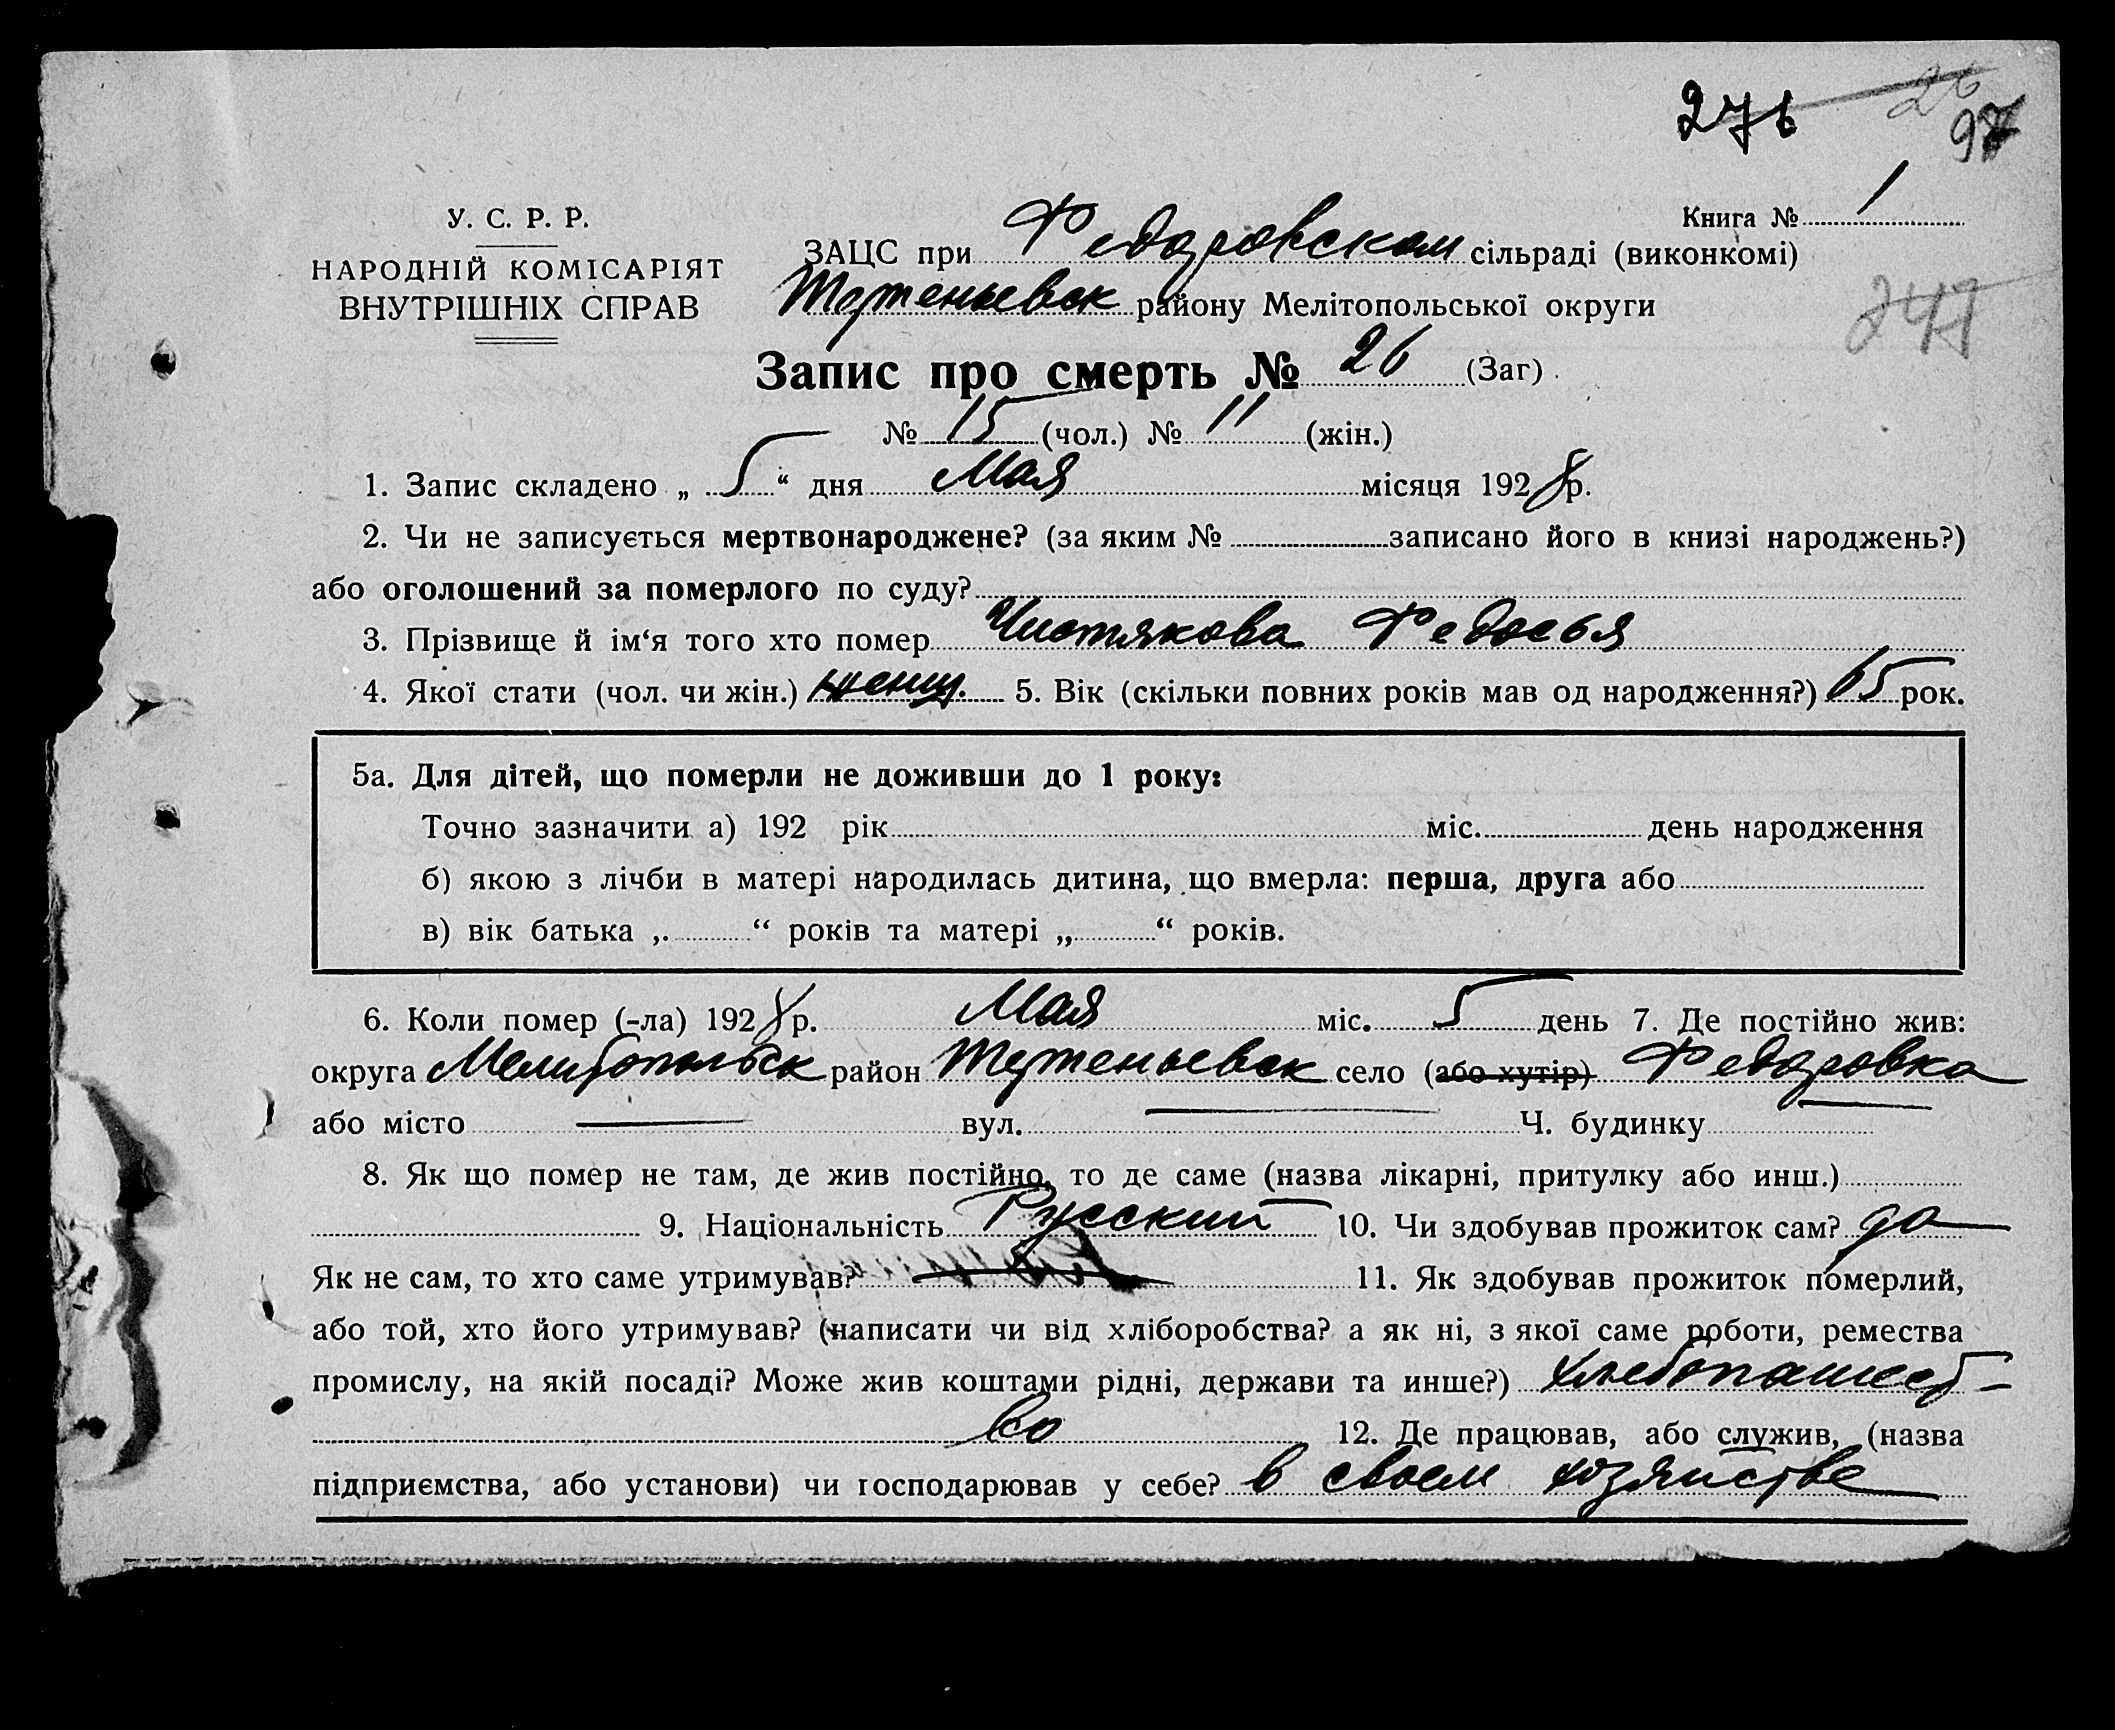 276 26
97
У. С. Р. Р.
НАРОДНІЙ КОМІСАРІЯТ
ВНУТРІШНІХ СПРАВ
Книга № 1
ЗАЦС при Федоровском сільраді (виконкомі)
району Мелітопольської округи
247
Запис про смерть № 26 (Заг)
№ 15 (чол.) № 11 (жін.)
1. Запис складено „ 5 “ дня Мая місяця 1928 р.
2. Чи не записується мертвонароджене? (за яким № записано його в книзі народжень?)
або оголошений за померлого по суду?
3. Прізвище й ім‘я того хто помер Чистякова Федосья
4. Якої стати (чол. чи жін.) женщ. 5. Вік (скільки повних років мав од народження?) 65 рок.
5а. Для дітей, що померли не доживши до 1 року:
Точно зазначити а) 192 рік міс. день народження
б) якою з лічби в матері народилась дитина, що вмерла: перша, друга або
в) вік батька „ “ років та матері „ “ років.
6. Коли помер (-ла) 1928 р. Мая міс. 5 день 7. Де постійно жив:
округа Мелитопольск район село (або хутір) Федоровка
або місто — вул. — Ч. будинку —
8. Як що помер не там, де жив постійно, то де саме (назва лікарні, притулку або инш.)
9. Національність Русский 10. Чи здобував прожиток сам? да
Як не сам, то хто саме утримував? 11. Як здобував прожиток померлий,
або той, хто його утримував? (написати чи від хліборобства? а як ні, з якої саме роботи, ремества
промислу, на якій посаді? Може жив коштами рідні, держави та инше?) хлебопашест-
во 12. Де працював, або служив, (назва
підприємства, або установи) чи господарював у себе? в своем хозяистве